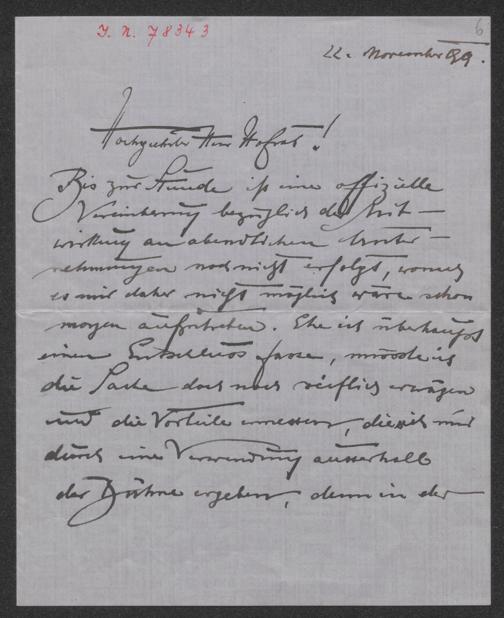 I. N. 78343
6
22. November 99.
Hochgeehrter Herr Hofrat!
Bis zur Stunde ist eine offizielle
Vereinbarung bezüglich der Mit-
wirkung an abendlichen Unter-
nehmungen noch nicht erfolgt, wonach
es mir daher nicht möglich wäre schon
morgen aufzutreten. Ehe ich überhaupt
einen Entschluss fasse, müsste ich
die Sache doch noch reiflich erwägen
und die Vorteile ermessen, die sich mir
durch eine Verwendung ausserhalb
der Bühne ergeben, denn in der